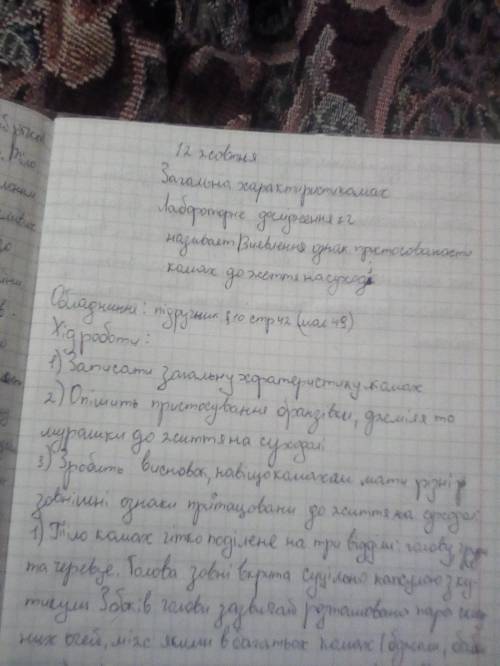 12 жовтня
Загальна характеристикамах
Лабороторне дослідження №2
називаєт Виявлення ознак пристосованости
комах до життя на суході
Обладнання: підручник § 10 стр 42 (мал 49)
Хід роботи:
1) Записати загальну характеристику комах
2) Опішить пристосування бранзівки, джміля то
мурашки до життя на суходолі
3) Зробить висновок, навіщо комахам мати різні
зовнішні ознаки до життя на
1) Тіло комах чітко поділене на три відділи: голову,
та черевце. Голова зовні вкрита суцільно капсулою з ку
тикули З боків голови зазвичай розташовано пара
них очей, між якими в багатьох комах (